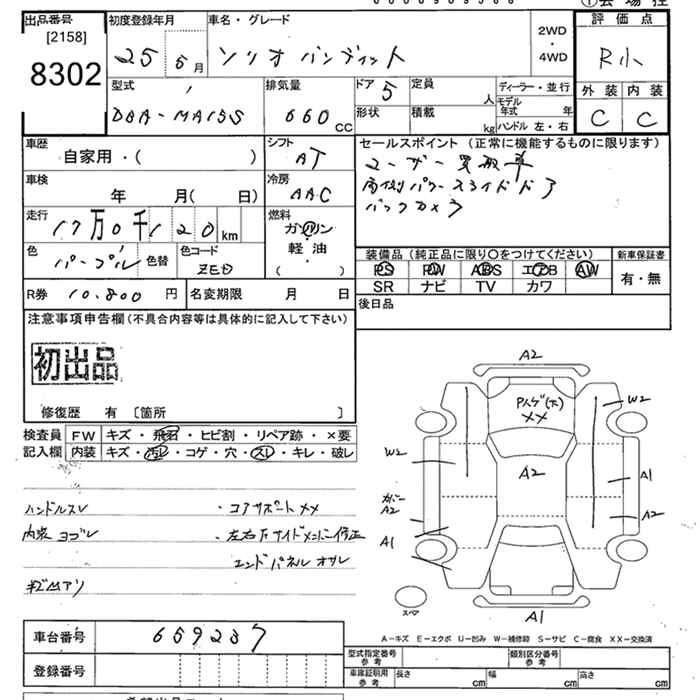 出品番号
[2158]
8302
初度登録年月
25 5月
車名・グレード
ソリオ バンディット
2WD
・
4WD
評価点
R小
型式
DBA-MA15S
排気量
660 CC
ドア 5
定員
人
形状
積載
kg
ディーラー・並行
モデル年式 年
ハンドル 左・右
外装 内装
C C
車歴
自家用・( )
シフト
AT
車検
年 月( 日)
冷房
AAC
走行
17万0千120km
燃料
ガソリン
軽油
( ・ )
色
パープル
色替
色コード
ZED
R券 10.800 円
名変期限 月 日
セールスポイント (正常に機能するものに限ります)
ユーザー買取車
両側パワースライドドア
バックカメラ
装備品 (純正品に限り○をつけてください)
新車保証書
PS PW ABS エアB AW
有・無
SR ナビ TV カワ
後日品
注意事項申告欄(不具合内容等は具体的に記入して下さい)
初出品
修復歴 有 〔箇所 〕
検査員記入欄
FW キズ・飛石・ヒビ割・リペア跡・×要
内装 キズ・汚レ・コゲ・穴・スレ・キレ・破レ
ハンドルスレ
・コアサポートXX
内装ヨゴレ
・左右Fサイドメンバー修正
エンドパネルオサレ
キズ凹アリ
A2
XX
W2
W2
A2
A1
A2
A2
A1
A1
スペア
A－キズ E－エクボ U－凹み W－補修跡 S－サビ C－腐食 XX－交換済
車台番号 659237
登録番号
型式指定番号
参考
類別区分番号
参考
車庫証明用
参考
長さ cm 幅 cm 高さ cm